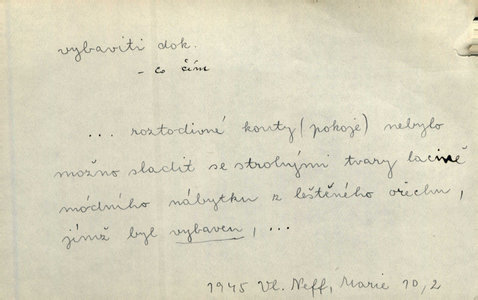 vybaviti dok.
- co čím
... roztodivné kouty (pokoje) nebylo
možno sladit se strohými tvary lacině
módního nábytku z leštěného ořechu,
jímž byl vybaven, ...
1945 Vl. Neff, Marie 10, 2